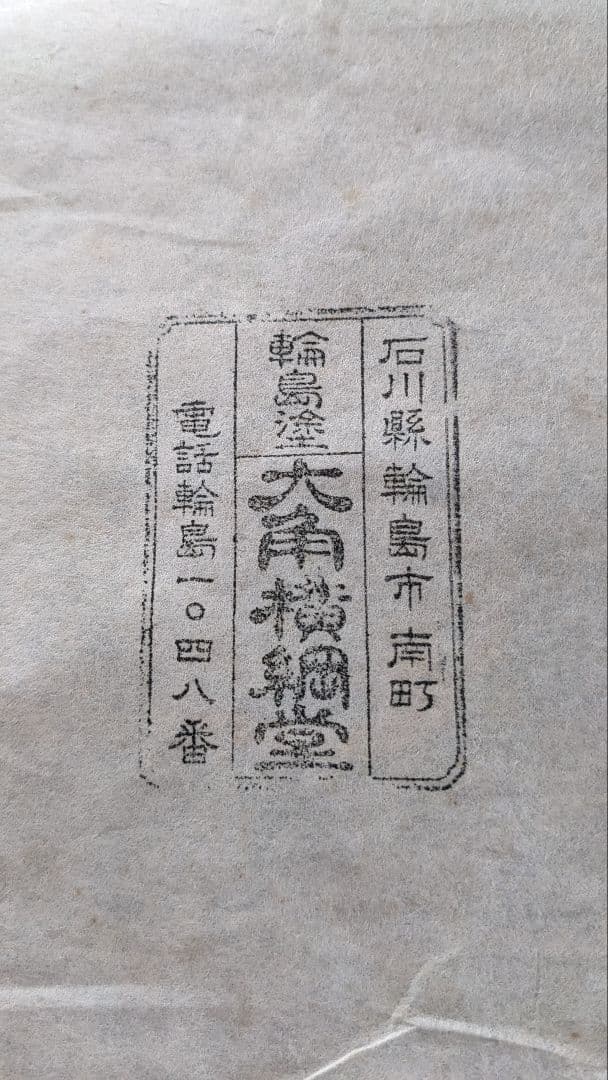 石川縣輪島市南町
輪島塗
大角横綱堂
電話輪島一〇四八番